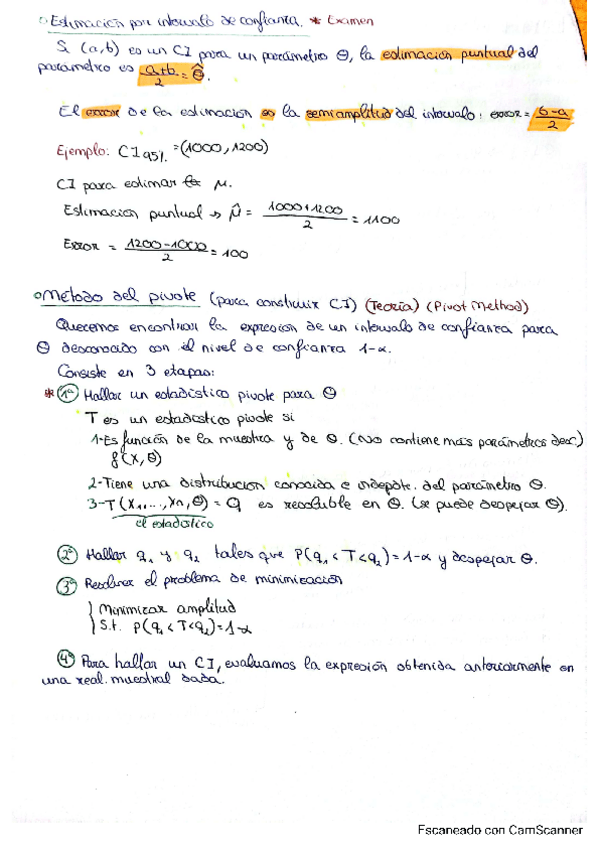 ○ Estimación por intervalo de confianza. * Examen
Si (a,b) es un CI para un parámetro Θ, la estimación puntual del
parámetro es a+b/2 = Θ̂.
El error de la estimación es la semiamplitud del intervalo: error = b-a/2
Ejemplo: CI95% = (1000, 1200)
CI para estimar μ.
Estimación puntual → μ̂ = 1000+1200/2 = 1100
Error = 1200-1000/2 = 100
○ Método del pivote (para construir CI) (Teoría) (Pivot Method)
Queremos encontrar la expresión de un intervalo de confianza para
Θ desconocido con el nivel de confianza 1-α.
Consiste en 3 etapas:
* 1ª Hallar un estadístico pivote para Θ
T es un estadístico pivote si
1-Es función de la muestra y de Θ. (No contiene más parámetros desc)
f(X, Θ)
2-Tiene una distribución conocida e indepdte. del parámetro Θ.
3-T(X1,..., Xn, Θ) = q es resoluble en Θ. (se puede despejar Θ).
el estadístico
2ª Hallar q1 y q2 tales que P(q1 < T < q2) = 1-α y despejar Θ.
3ª Resolver el problema de minimización
Minimizar amplitud
S.t. P(q1 < T < q2) = 1-α
4ª Para hallar un CI, evaluamos la expresión obtenida anteriormente en
una real. muestral dada.
Escaneado con CamScanner